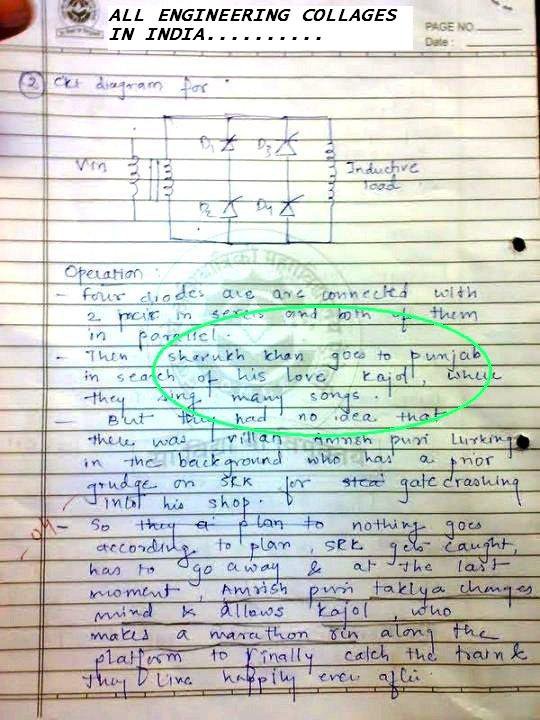 ALL ENGINEERING COLLAGES
IN INDIA..........
PAGE NO.
Date :
② Ckt diagram for
Vin
D1
D3
D2
D4
Inductive
Load
Operation :
- Four diodes are are connected with
2 pair in series and both of them
in parallel.
- Then sharukh khan goes to punjab
in search of his love kajol, where
they sing many songs.
- But they had no idea that
there was villan Amrish puri Lurking
in the background who has a prior
grudge on SRK for gatecrashing
into his shop.
- So they plan to nothing goes
according to plan, SRK gets caught,
has to go away & at the last
moment, Amrish puri takiya changes
mind & allows Kajol, who
makes a marathon rin along the
platform to finally catch the train &
They Live happily ever after.